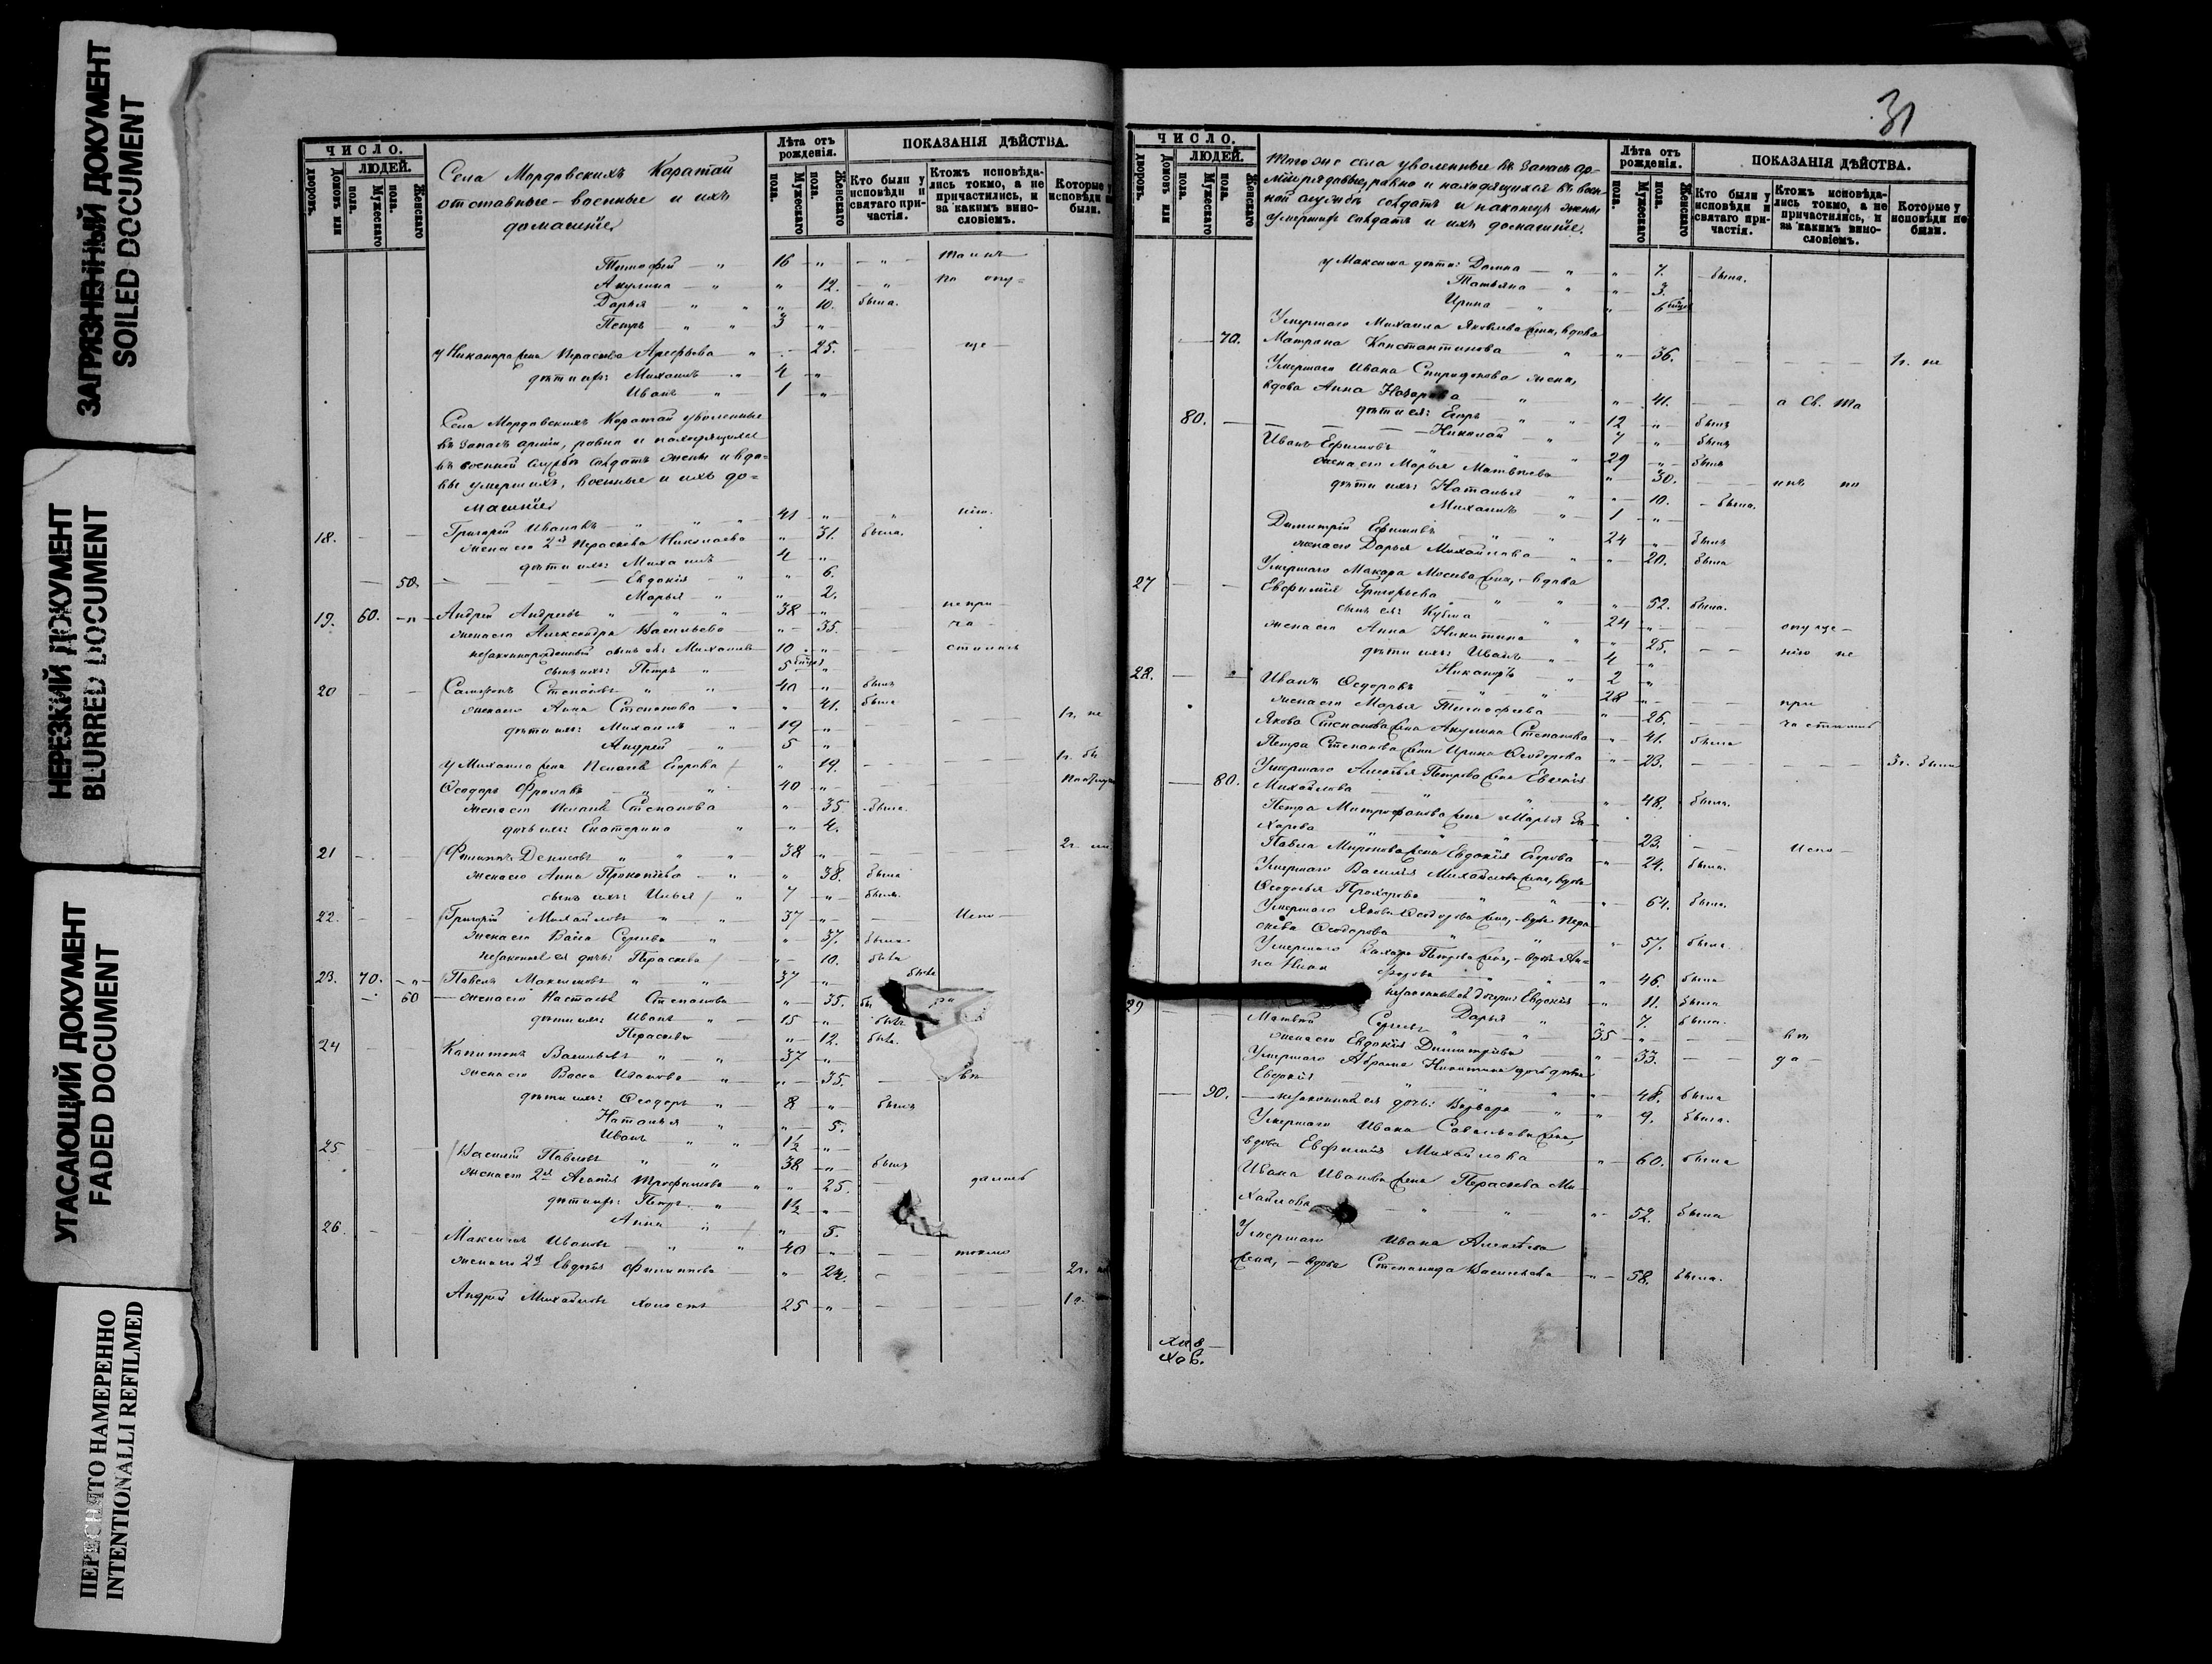 ЗАГРЯЗНЕННЫЙ ДОКУМЕНТ
SOILED DOCUMENT
НЕРЕЗКИЙ ДОКУМЕНТ
BLURRED DOCUMENT
УГАСАЮЩИЙ ДОКУМЕНТ
FADED DOCUMENT
ПЕРЕСНЯТО НАМЕРЕННО
INTENTIONALLI REFILMED
ЧИСЛО.
ЛЮДЕЙ.
Домовъ или дворовъ.
Мужескаго пола.
Женскаго пола.
Села Мордовскихъ Каратай
отставные – военные и ихъ
домашніе
Лѣта отъ рожденія.
Мужескаго пола.
Женскаго пола.
ПОКАЗАНІЯ ДѢЙСТВА.
Кто были у исповѣди и святаго причастія.
Ктожъ исповѣдались токмо, а не причастились, и за какимъ винословіемъ.
Которые у исповѣди не были.
Тимофей 16
Акулина 12. по опу=
Дарья 10. была.
Петръ 3
у Никанора жена Параскева Арефьева 25. ще
дѣти ихъ: Михаилъ 4
Иванъ 1
Села Мордовскихъ Каратай уволенные
въ запасъ арміи, равно и находящихся
въ военной службѣ солдатъ жены и вдо=
вы умершихъ, военные и ихъ до=
машніе
18. Григорій Ивановъ 41 нію.
жена его 2я Параскева Николаева 31. была.
дѣти ихъ: Михаилъ 4
50. Евдокія 6.
Марья 2.
19. 60. Андрей Андреевъ 38 не при
жена его Александра Васильева 35. ча
незаконнорожденный сынъ ея: Михаилъ 10 стились
сынъ ихъ: Петръ 5
20 Сампсонъ Степановъ 40 былъ
жена его Анна Степанова 41. была
дѣти ихъ: Михаилъ 19 1г. не
Андрей 5
у Михаила жена Пелагія Егорова 19.
Ѳеодоръ Фроловъ 40
жена его Пелагія Степанова 35. была
дочь ихъ: Екатерина 4.
21 Филиппъ Денисовъ 38
жена его Анна Прокопіева 38. была
сынъ ихъ: Илья 7 былъ.
22. Григорій Михайловъ 37 Испо
жена его Васса Сергѣева 37. была
незаконная ея дочь: Параскева 10. была
23. 70. Павелъ Максимовъ 37
60 жена его Настасья Степанова 35.
дѣти ихъ: Иванъ 15
Параскева 12. была.
24 Капитонъ Васильевъ 37
жена его Васса Иванова 35. вѣ
дѣти ихъ: Ѳеодоръ 8 былъ
Наталья 5.
Иванъ 1½
25 Василій Павловъ 38 былъ
жена его 2я Агафія Трофимова 25. дались
дѣти ихъ: Петръ 1½
Анна 5.
26. Максимъ Ивановъ 40 токмо
жена его 2я Евдокія Филиппова 24. 2г.
Андрей Михайловъ холостъ 25
31
ЧИСЛО.
ЛЮДЕЙ.
Домовъ или дворовъ.
Мужескаго пола.
Женскаго пола.
Того же села уволенные въ запасъ ар=
міи рядовые, равно и находящихся въ воен=
ной службѣ солдатъ и наконецъ жены
умершихъ солдатъ и ихъ домашніе.
Лѣта отъ рожденія.
Мужескаго пола.
Женскаго пола.
ПОКАЗАНІЯ ДѢЙСТВА.
Кто были у исповѣди и святаго причастія.
Ктожъ исповѣдались токмо, а не причастились, и за какимъ винословіемъ.
Которые у исповѣди не были.
у Максима дѣти: Домна 7. была.
Татьяна 3.
Ирина 6
Умершаго Михаила Яковлева жена, вдова
70. Матрона Константинова 36. 1г. не
Умершаго Ивана Спиридонова жена,
вдова Анна Назарова 41. а Св. Та
дѣти ея: Егоръ 12 былъ
80. Николай 7 былъ
Иванъ Ефимовъ 29 былъ
жена его Марья Матвѣева 30.
дѣти ихъ: Наталья 10. была.
Михаилъ 1
Димитрій Ефимовъ 24 былъ
жена его Дарья Михайлова 20. была
Умершаго Макара Мосеева жена, – вдова
27 Евфимія Григорьева 52. была.
сынъ ея: Кузма 24 опуще
жена его Анна Никитина 25. нію не
дѣти ихъ: Иванъ 4
Никаноръ 2
28. Иванъ Ѳедоровъ 28 при
жена его Марья Тимофеева 26. частились
Якова Степанова жена Акулина Степанова 41. была
Петра Степанова жена Ирина Ѳеодорова 23. 3г. были
Умершаго Алексѣя Петрова жена Евгенія
80. Михайлова 48. была.
Петра Митрофанова жена Марья За
харова 23. Испо
Павла Миронова жена Евдокія Егорова 24. была.
Умершаго Василія Михайлова жена, вдова
Ѳеодосья Прохорова 64. была.
Умершаго Якова Ѳеодорова жена, – вдова Пара
скева Ѳеодорова 57. была
Умершаго Захара Петрова жена, – вдова Ан=
на 46. была
незаконныя ея дочери: Евдокія 11. была
Дарья 7. была.
29 Матвей Сергѣевъ 35 вѣ
жена его Евдокія Димитріева 33. да
Умершаго Абрама Никитина дочь дѣвка
Евдокія 48. была
90. незаконная ея дочь: Варвара 9. была.
Умершаго Ивана Савельева жена,
вдова Евфимія Михайлова 60. была
Ивана Иванова жена Параскева Ми
хайлова 52. была
Умершаго Ивана Алексѣева
жена, – вдова Степанида Васильева 58. была.